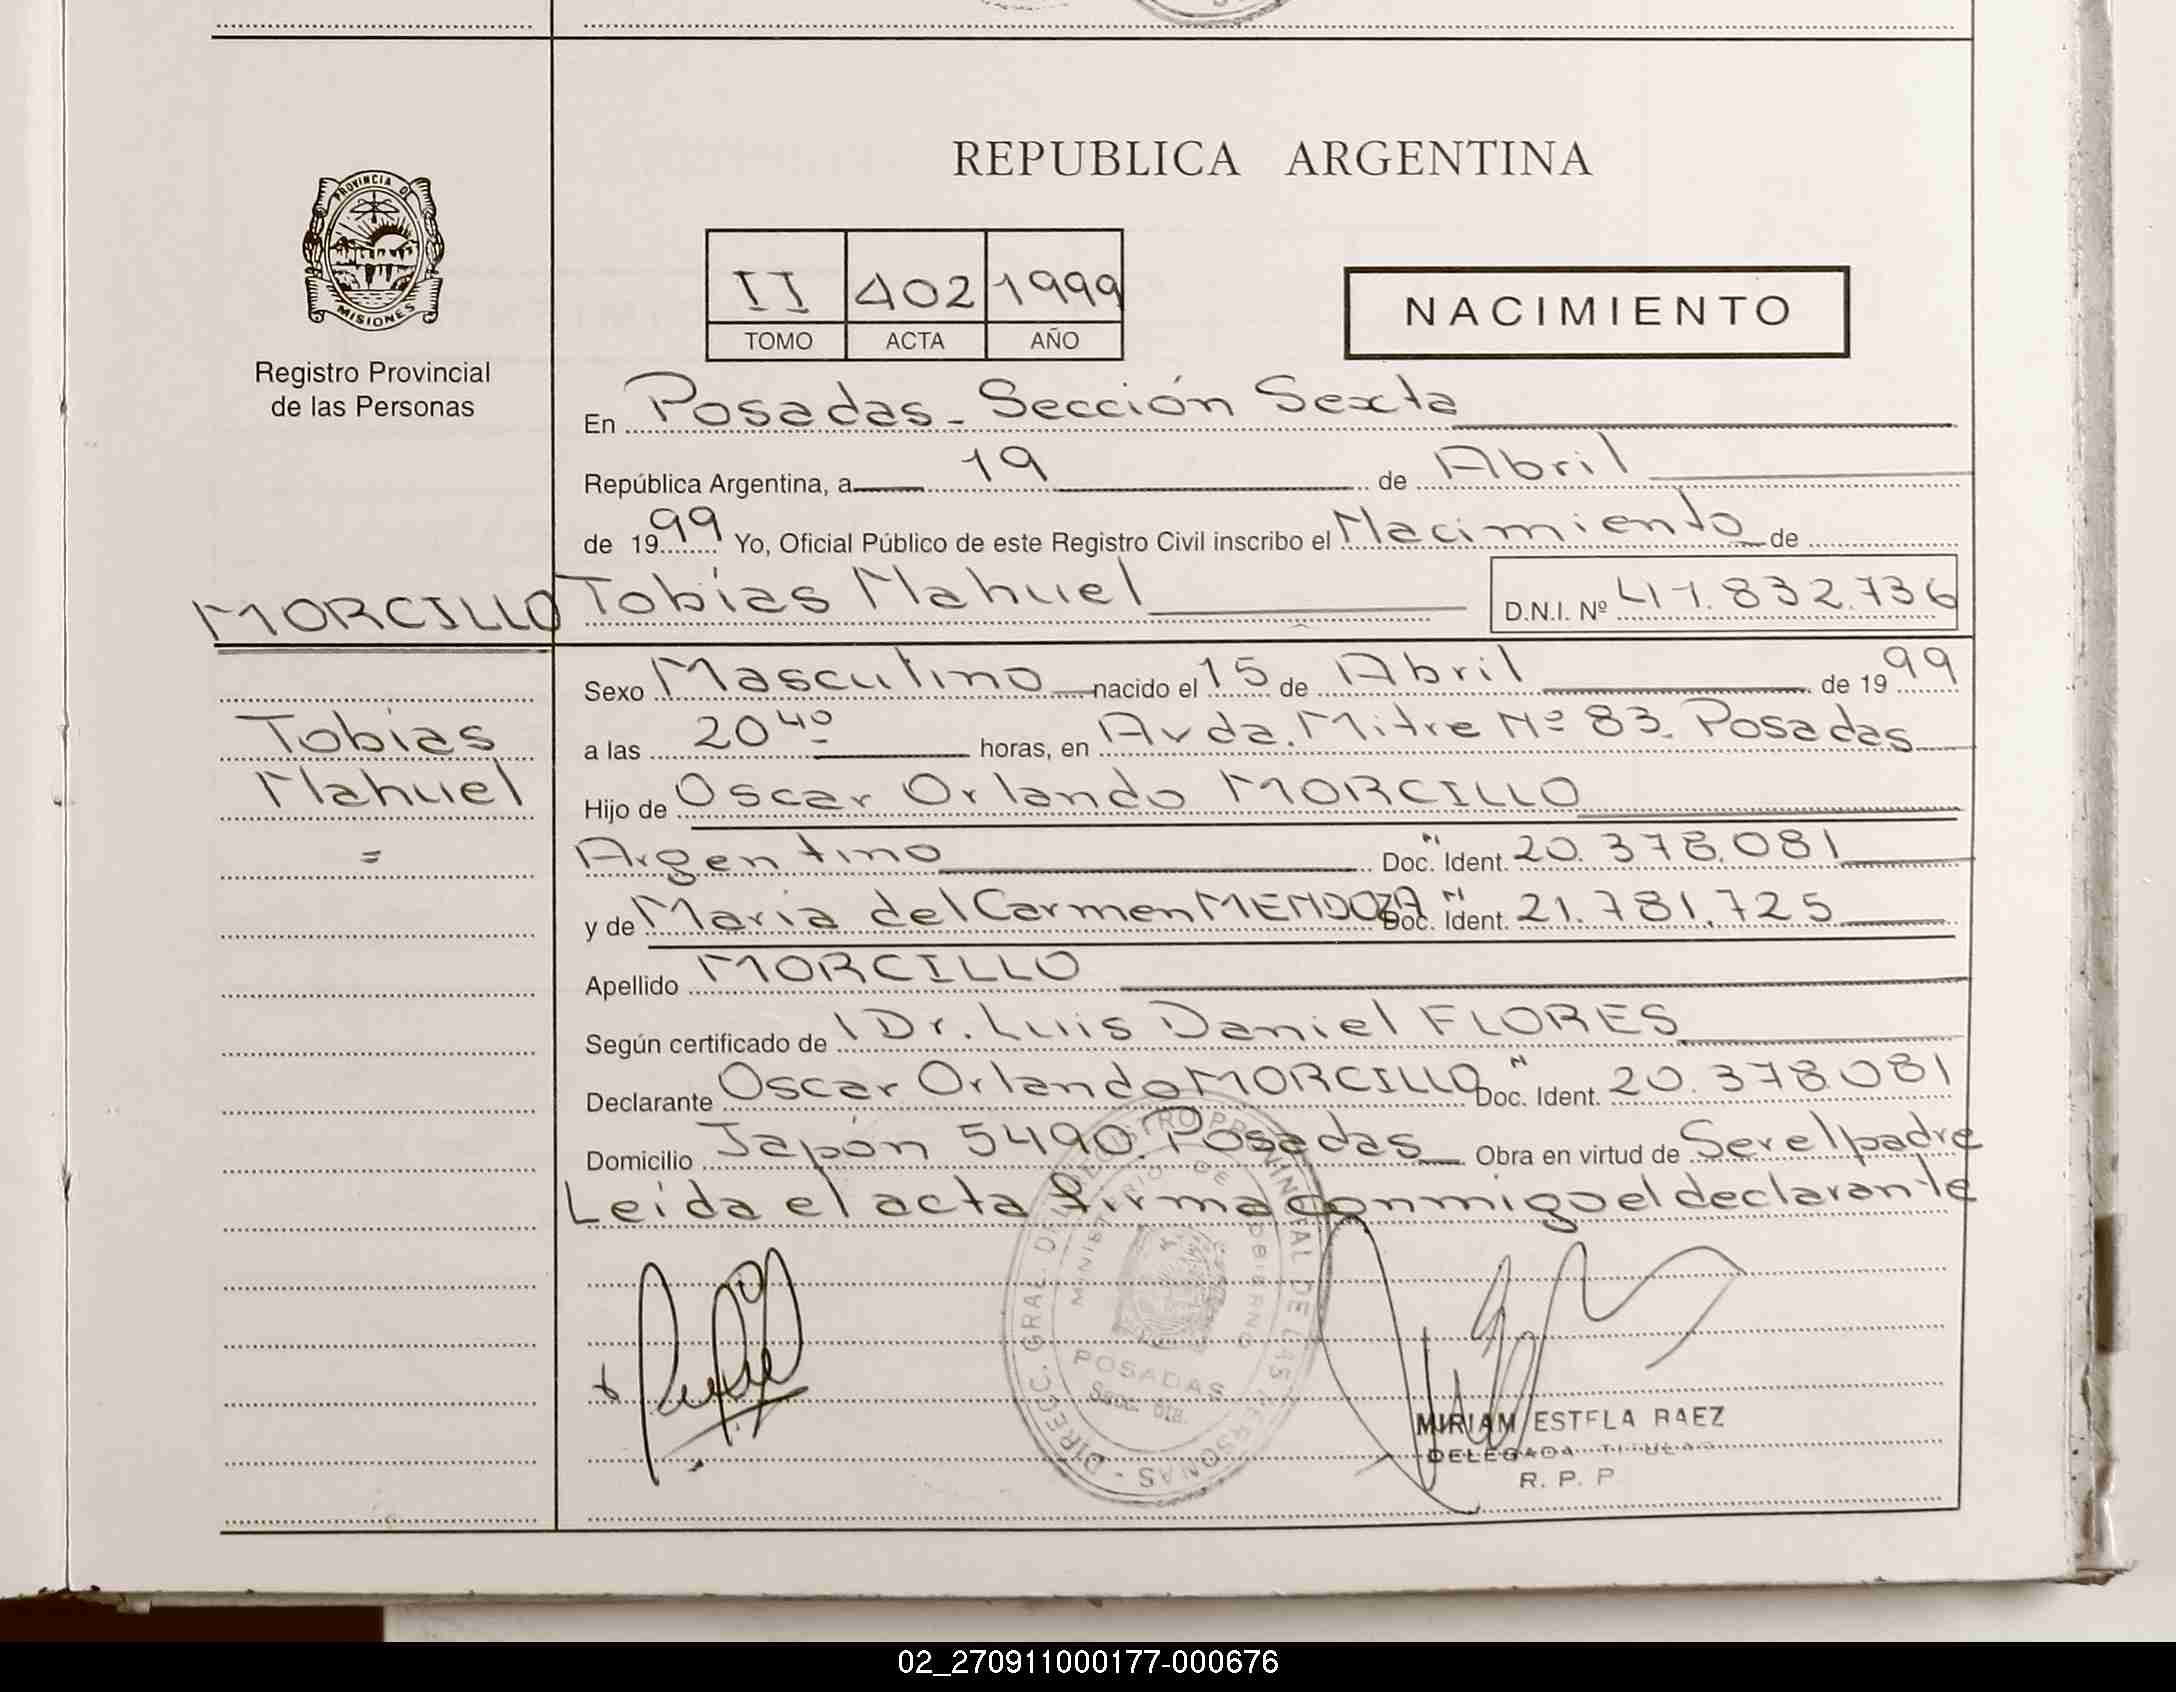 REPUBLICA ARGENTINA
PROVINCIA DE
MISIONES
Registro Provincial
de las Personas
II 402 1999
TOMO ACTA AÑO
NACIMIENTO
En Posadas - Sección Sexta
República Argentina, a 19 de Abril
de 1999 Yo, Oficial Público de este Registro Civil inscribo el Nacimiento de
MORCILLO Tobias Nahuel D.N.I. Nº 41.832.736
Sexo Masculino nacido el 15 de Abril de 1999
Tobias
a las 20 40 horas, en Avda. Mitre Nº 83. Posadas
Nahuel
Hijo de Oscar Orlando MORCILLO
=
Argentino Doc. Ident. 20.378.081
y de Maria del Carmen MENDOZA Doc. Ident. 21.781.725
Apellido MORCILLO
Según certificado de Dr. Luis Daniel FLORES
Declarante Oscar Orlando MORCILLO Doc. Ident. 20.378.081
Domicilio Japón 5490. Posadas Obra en virtud de Ser el padre
Leida el acta firma conmigo el declarante
DIRECC. GRAL. DEL REGISTRO PROVINCIAL DE LAS PERSONAS
MINISTERIO DE GOBIERNO
POSADAS
MIRIAM ESTELA BAEZ
DELEGADA TITULAR
R. P. P
02_270911000177-000676